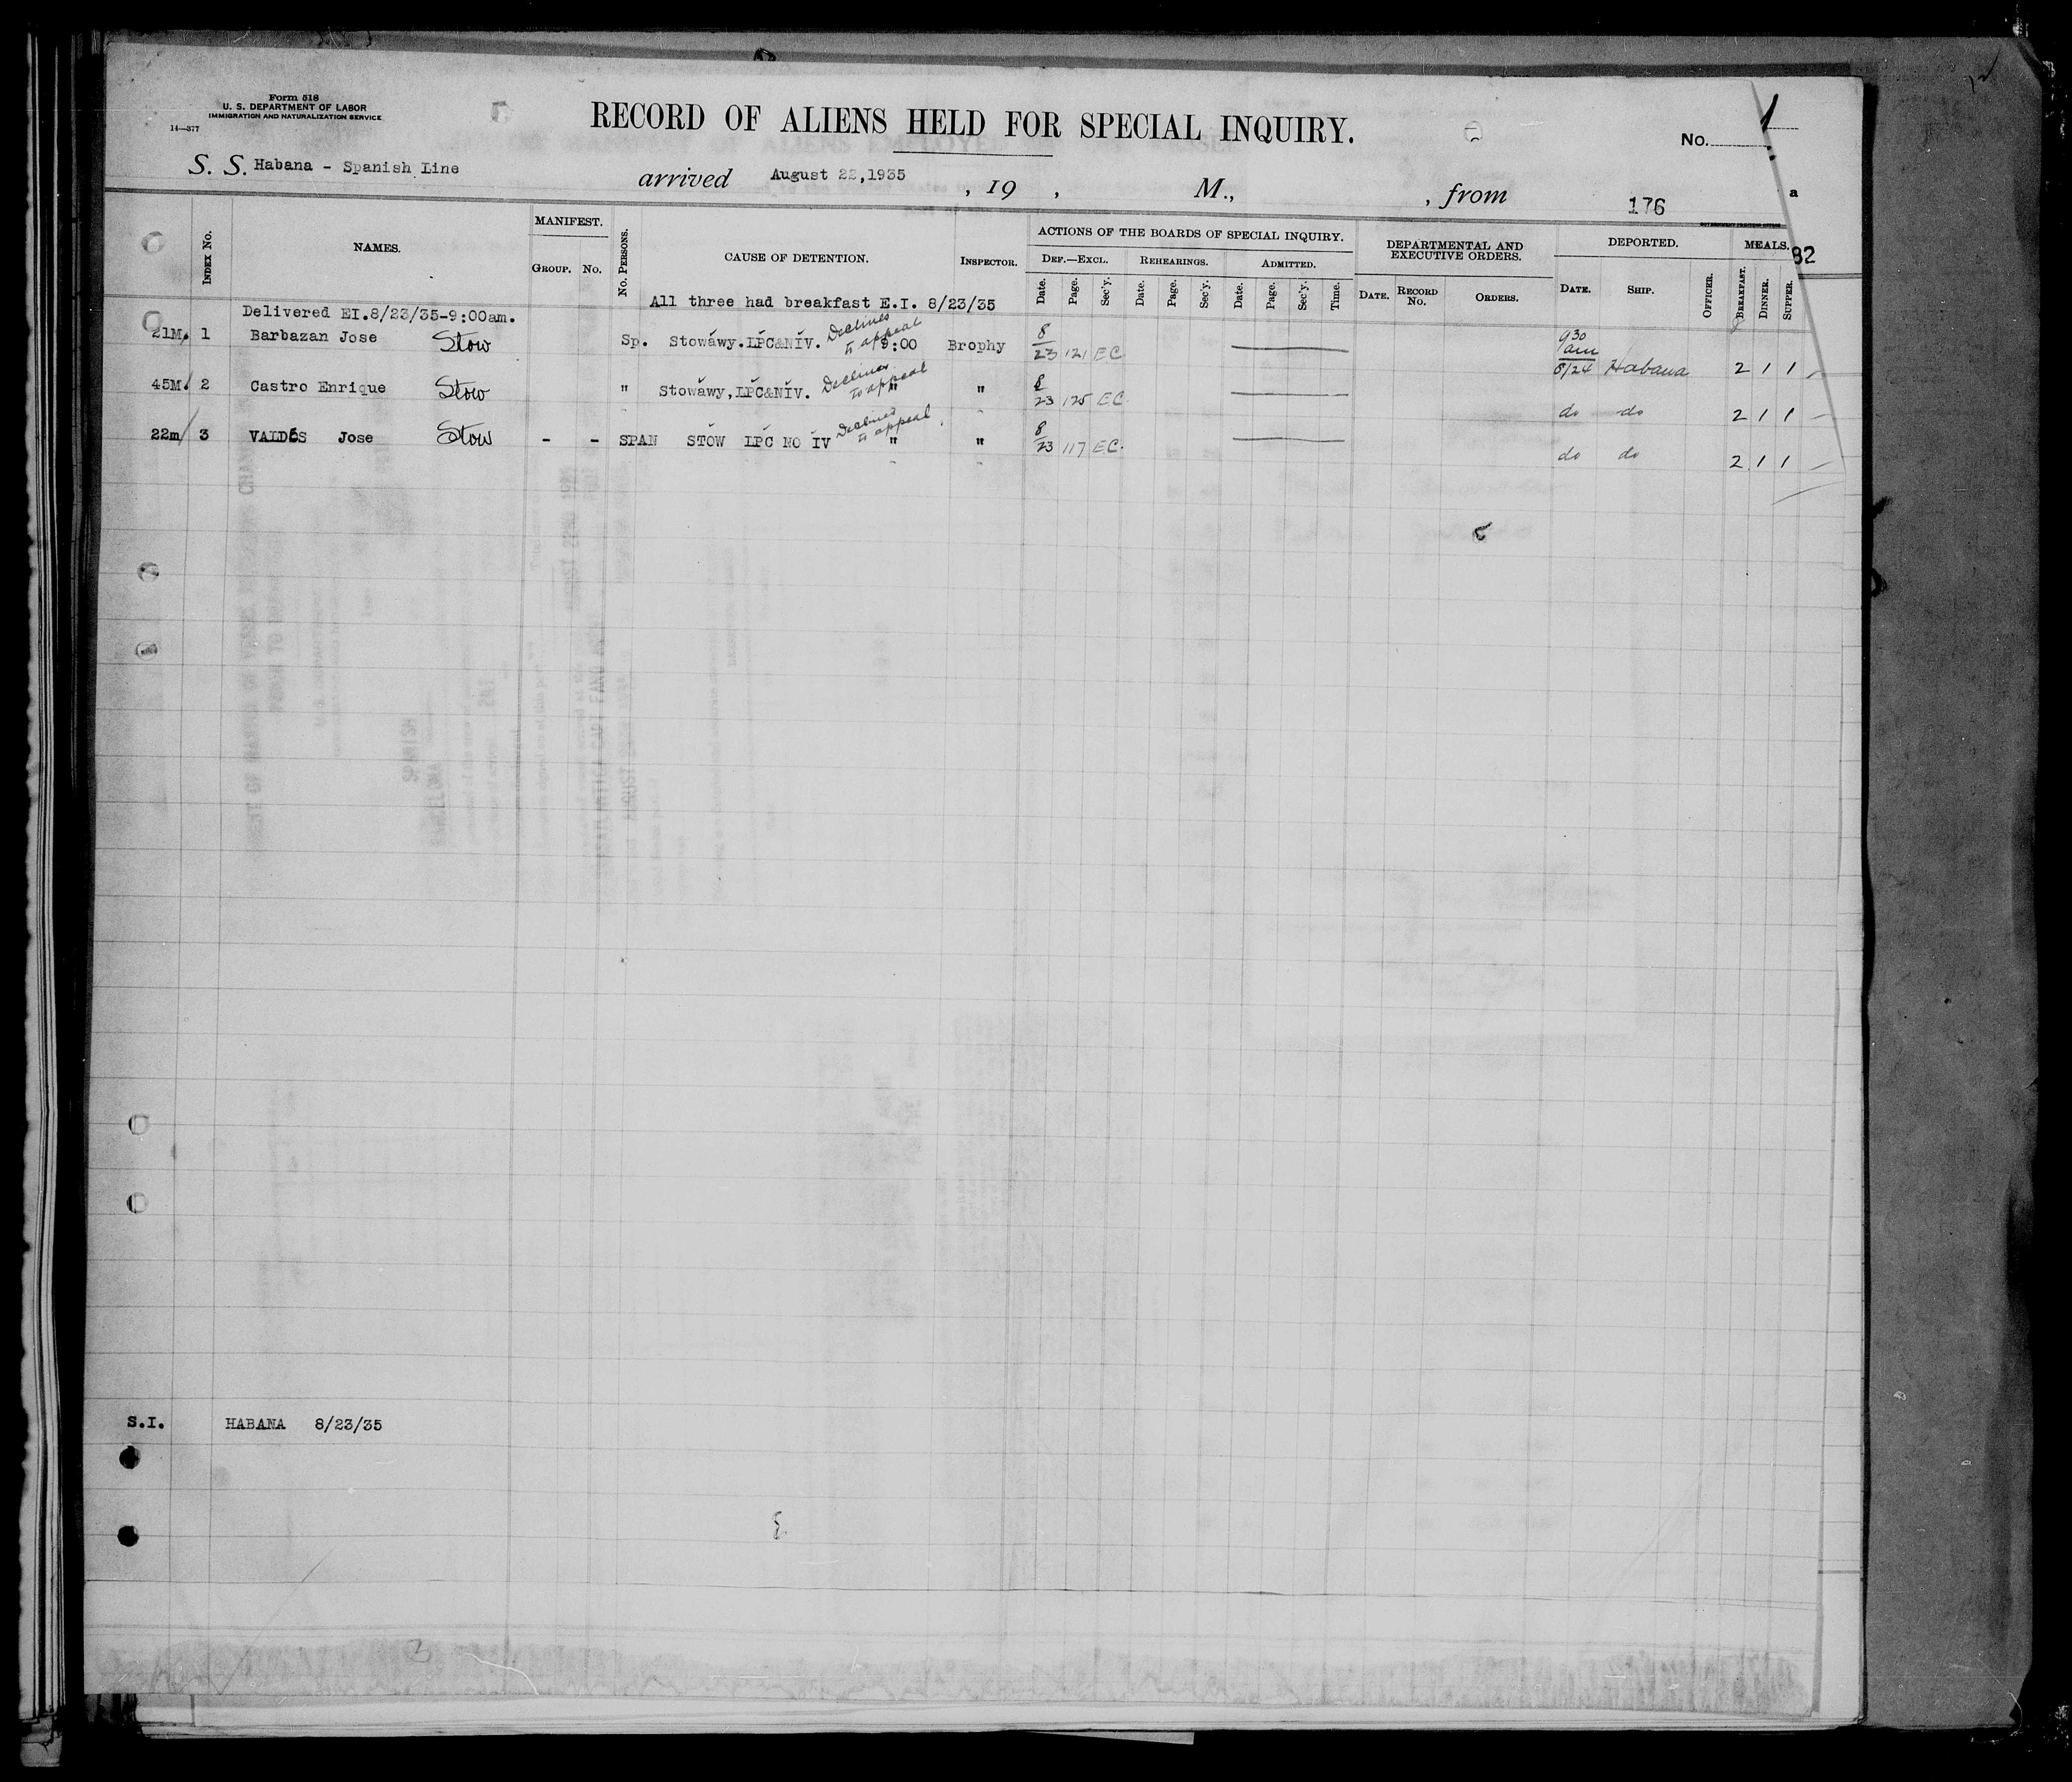 Form 518
U. S. DEPARTMENT OF LABOR
IMMIGRATION AND NATURALIZATION SERVICE
14—377
RECORD OF ALIENS HELD FOR SPECIAL INQUIRY.
No. 1
S. S. Habana - Spanish Line arrived August 22,1935 , 19 , M., , from 176
a
82
INDEX NO. NAMES. MANIFEST. GROUP. NO. NO. PERSONS. CAUSE OF DETENTION. INSPECTOR. ACTIONS OF THE BOARDS OF SPECIAL INQUIRY. DEF.—EXCL. Date. Page. Sec'y. REHEARINGS. Date. Page. Sec'y. ADMITTED. Date. Page. Sec'y. Time. DEPARTMENTAL AND EXECUTIVE ORDERS. DATE. RECORD NO. ORDERS. DEPORTED. DATE. SHIP. OFFICER. MEALS. BREAKFAST. DINNER. SUPPER.
Delivered EI.8/23/35-9:00am. All three had breakfast E.I. 8/23/35
21M. 1 Barbazan Jose Stow Sp. Stowawy.LPC&NIV. Declines to appeal 9:00 Brophy 8/23 121 EC 930 am 8/24 Habana 2 1 1
45M. 2 Castro Enrique Stow " Stowawy,LPC&NIV. Declines to appeal " " 8/23 125 EC. do do 2 1 1
22m 3 VALDÉS Jose Stow - - SPAN STOW LPC NO IV Declines to appeal " " 8/23 117 EC. do do 2 1 1
S.I. HABANA 8/23/35